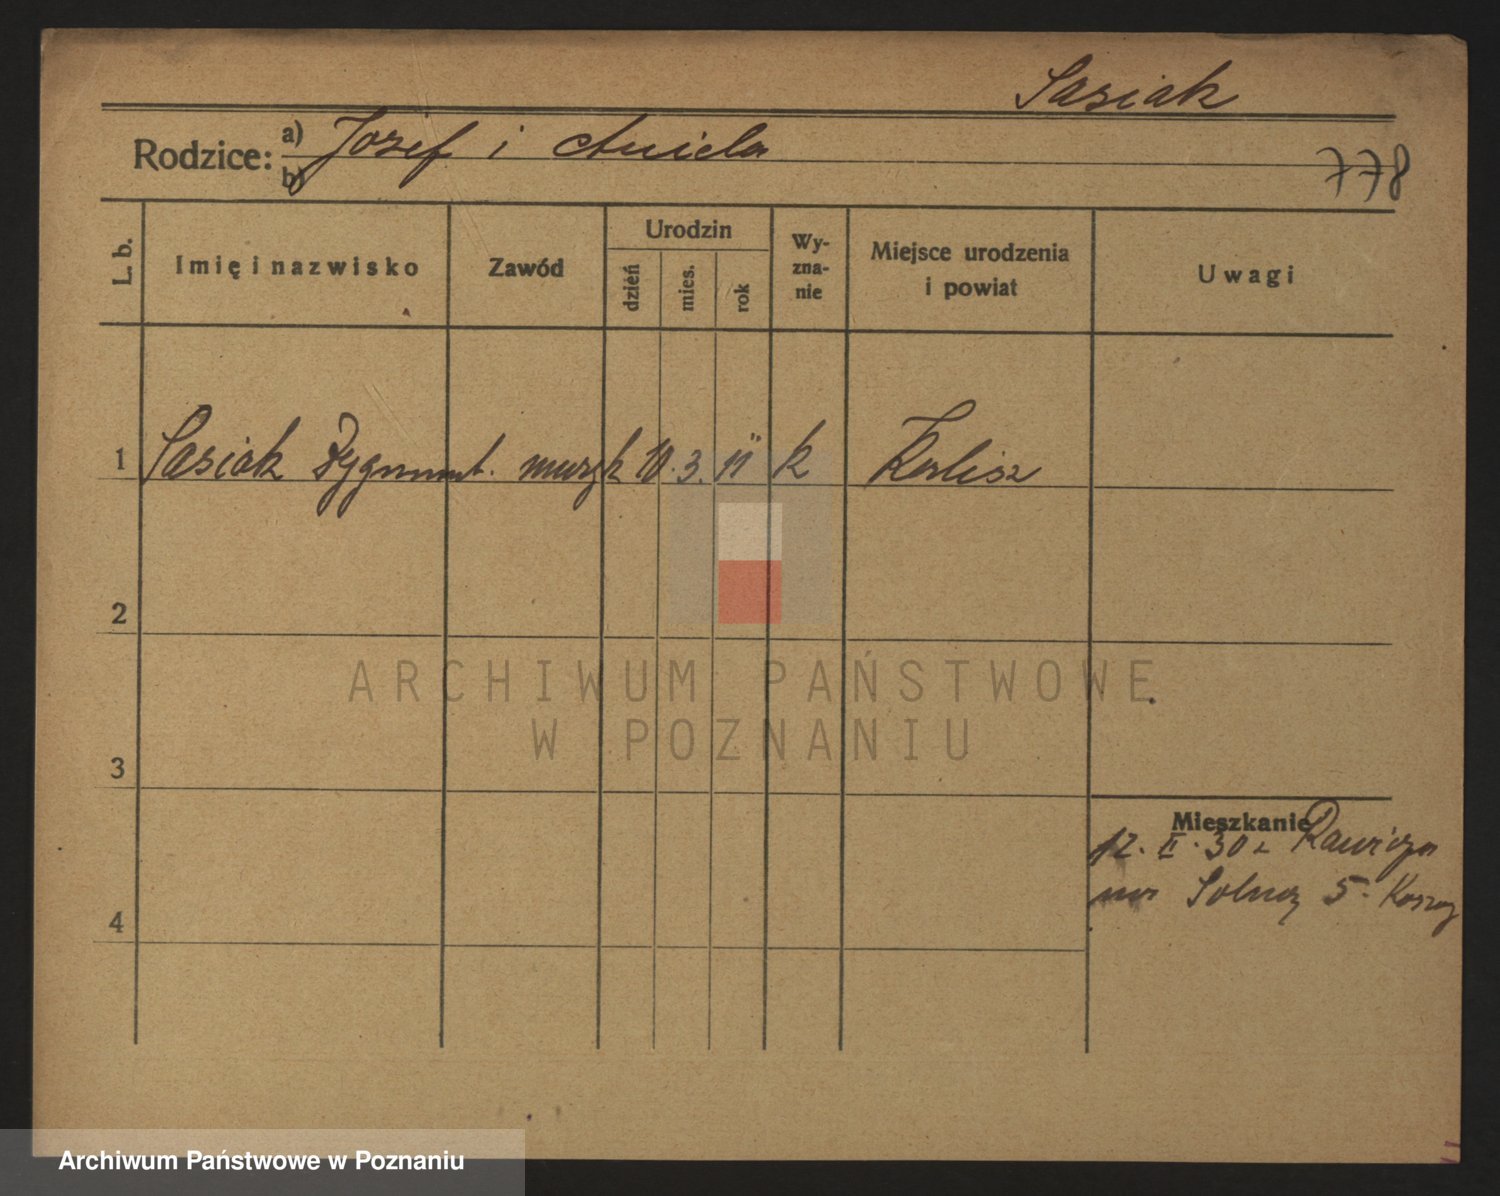 Sasiak
Rodzice: a) Józef i Aniela
b)
778
L. b.
Imię i nazwisko
Zawód
Urodzin
dzień
mies.
rok
Wy-
zna-
nie
Miejsce urodzenia
i powiat
Uwagi
1 Sasiak Zygmunt. muzyk 10. 3. 11 k Kalisz
2
3
4
Mieszkanie
12. II. 30 z Rawicza
na Solną 5. Koszary
ARCHIWUM PAŃSTWOWE
W POZNANIU
Archiwum Państwowe w Poznaniu